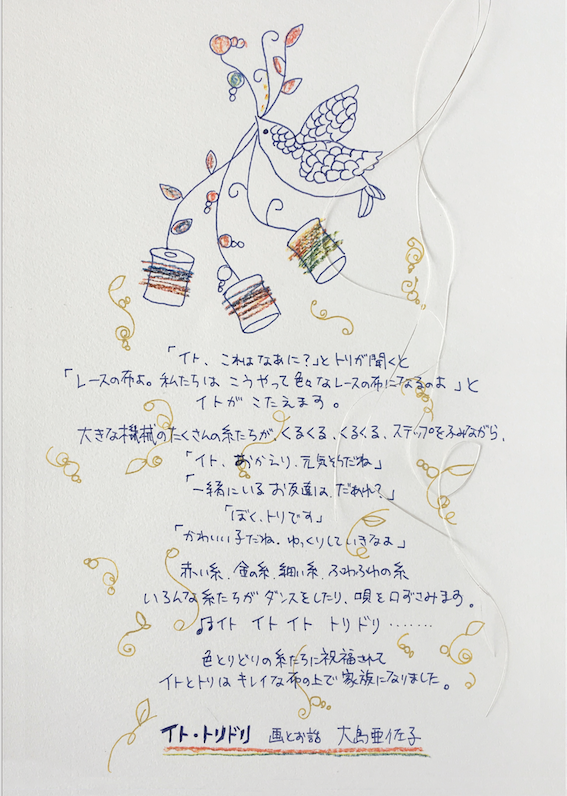 「イト、これはなあに？」とトリが聞くと
「レースの布よ。私たちは こうやって色々なレースの布になるのよ」と
イトが こたえます。
大きな機械のたくさんの糸たちが、くるくる、くるくる、ステップをふみながら、
「イト、おかえり、元気そうだね」
「一緒にいる お友達は、だあれ？」
「ぼく、トリです」
「かわいい子だね。ゆっくりしていきなよ」
赤い糸、金の糸、細い糸、ふわふわの糸
いろんな糸たちが ダンスをしたり、唄を口ずさみます。
♫イト イト イト トリ ドリ ‥‥‥‥
色とりどりの糸たちに祝福されて
イトとトリは キレイな布の上で 家族になりました。
イト・トリドリ 画とお話 大島亜佐子